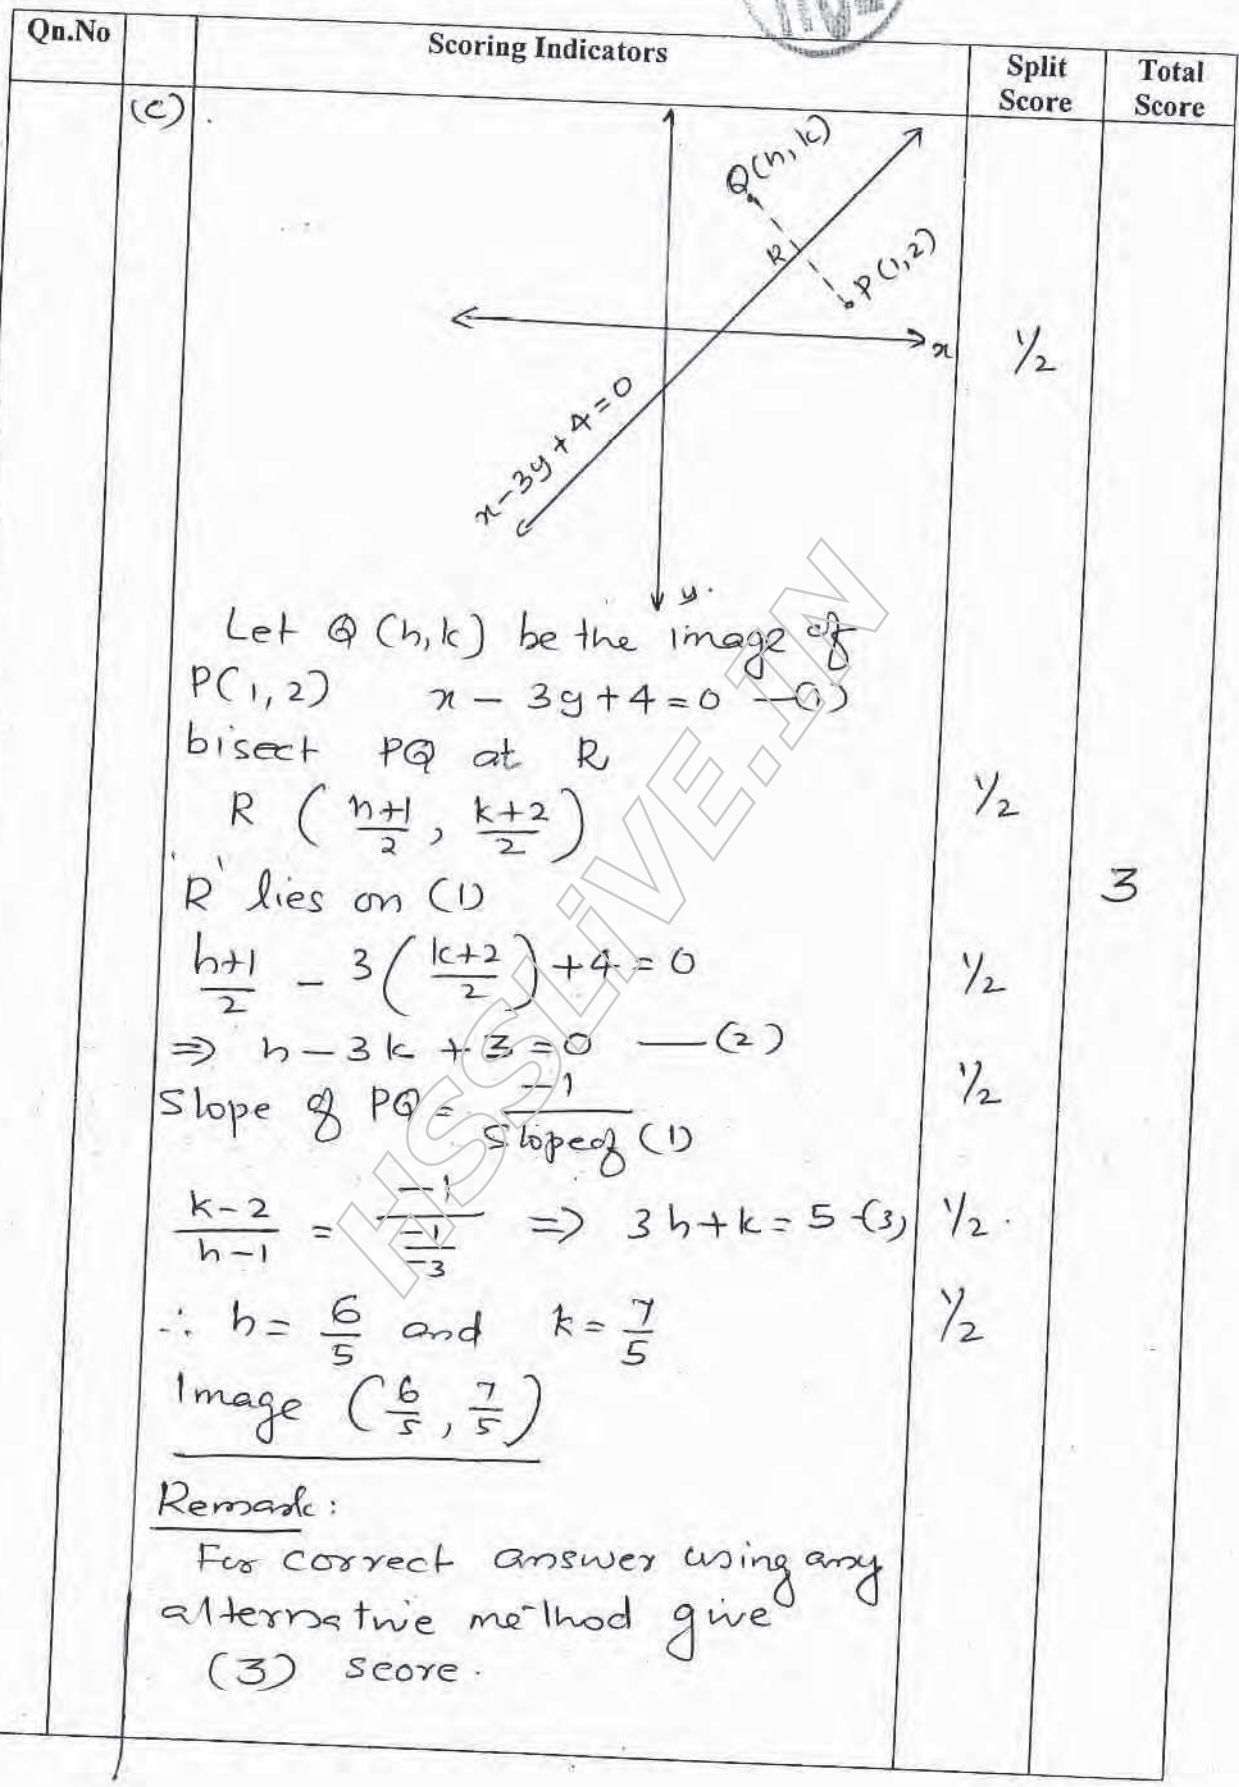 Qn.No
Scoring Indicators
Split Score
Total Score
(c)
Q(h,k)
R
P(1,2)
x
x-3y+4=0
y.
1/2
Let Q (h,k) be the image of
P(1,2) x - 3y+4=0 —(1)
bisect PQ at R
R ( h+1/2 , k+2/2 ) 1/2
'R' lies on (1)
3
h+1/2 - 3( k+2/2 ) +4=0 1/2
⇒ h-3k+3=0 —(2)
Slope of PQ = -1/Slope of (1) 1/2
k-2/h-1 = -1/(-1/-3) ⇒ 3h+k=5 -(3) 1/2.
∴ h= 6/5 and k= 7/5 1/2
Image ( 6/5 , 7/5 )
Remark:
For correct answer using any
alternative method give
(3) score.
HSSLiVE.IN